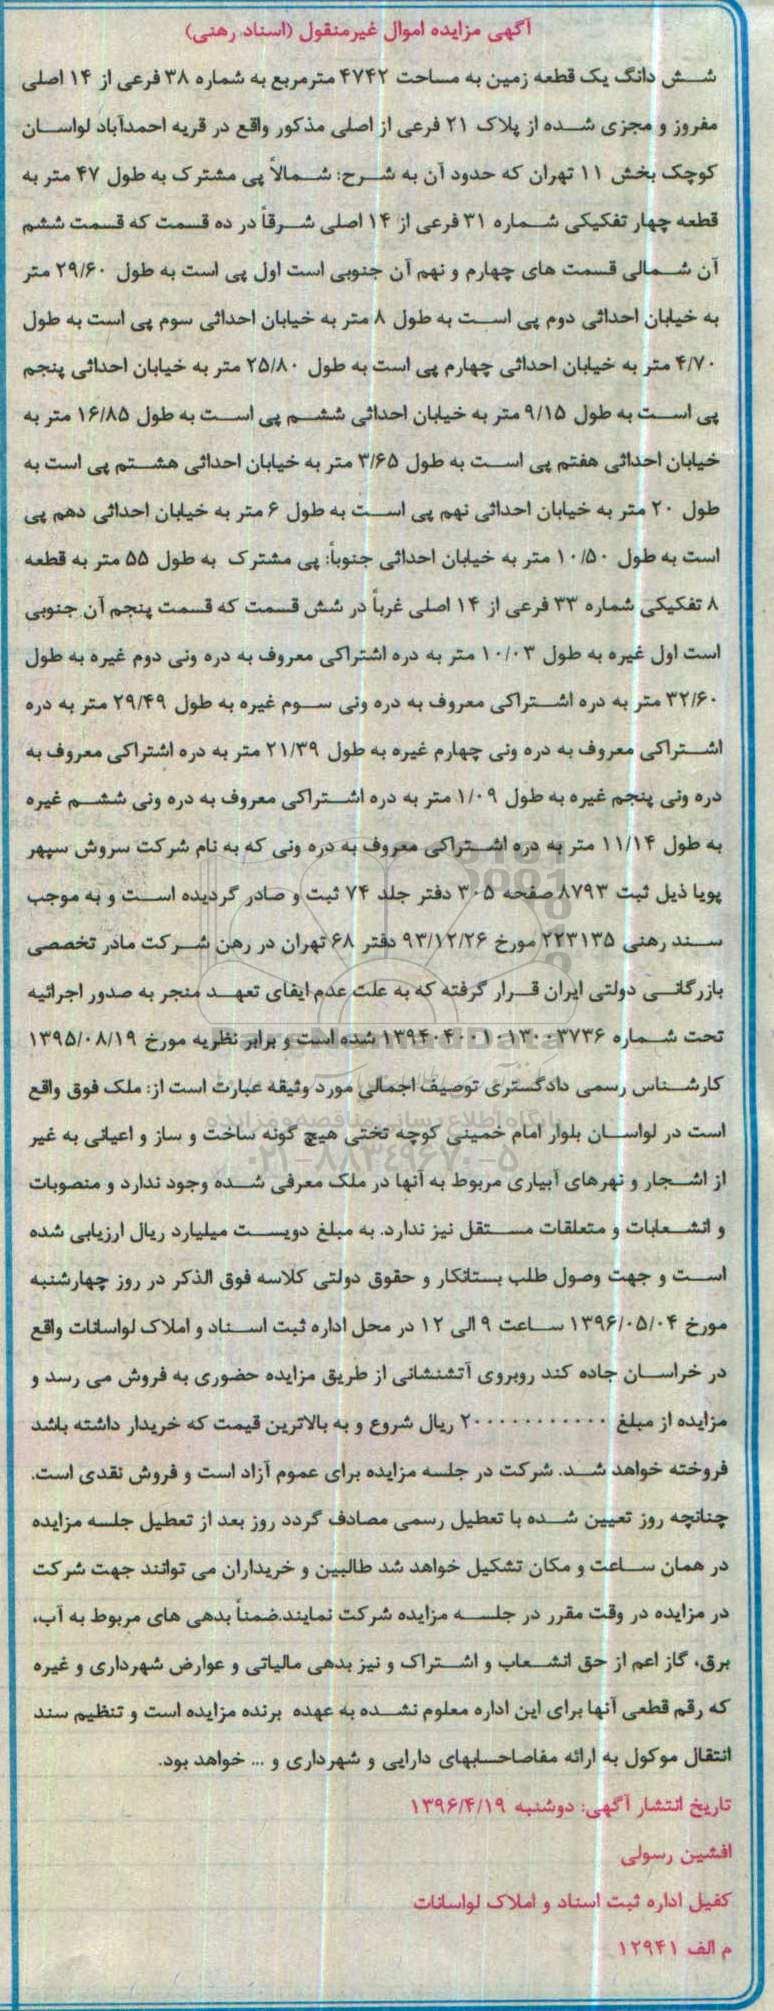 آگهی مزایده اموال غیرمنقول (اسناد رهنی)
شش دانگ یک قطعه زمین به مساحت ۴۷۴۲ مترمربع به شماره ۳۸ فرعی از ۱۴ اصلی
مفروز و مجزی شده از پلاک ۲۱ فرعی از اصلی مذکور واقع در قریه احمدآباد لواسان
کوچک بخش ۱۱ تهران که حدود آن به شرح: شمالاً پی مشترک به طول ۴۷ متر به
قطعه چهار تفکیکی شماره ۳۱ فرعی از ۱۴ اصلی شرقاً در ده قسمت که قسمت ششم
آن شمالی قسمت های چهارم و نهم آن جنوبی است اول پی است به طول ۲۹/۶۰ متر
به خیابان احداثی دوم پی است به طول ۸ متر به خیابان احداثی سوم پی است به طول
۴/۷۰ متر به خیابان احداثی چهارم پی است به طول ۲۵/۸۰ متر به خیابان احداثی پنجم
پی است به طول ۹/۱۵ متر به خیابان احداثی ششم پی است به طول ۱۶/۸۵ متر به
خیابان احداثی هفتم پی است به طول ۳/۶۵ متر به خیابان احداثی هشتم پی است به
طول ۲۰ متر به خیابان احداثی نهم پی است به طول ۶ متر به خیابان احداثی دهم پی
است به طول ۱۰/۵۰ متر به خیابان احداثی جنوباً: پی مشترک به طول ۵۵ متر به قطعه
۸ تفکیکی شماره ۳۳ فرعی از ۱۴ اصلی غرباً در شش قسمت که قسمت پنجم آن جنوبی
است اول غیره به طول ۱۰/۰۳ متر به دره اشتراکی معروف به دره ونی دوم غیره به طول
۳۲/۶۰ متر به دره اشتراکی معروف به دره ونی سوم غیره به طول ۲۹/۴۹ متر به دره
اشتراکی معروف به دره ونی چهارم غیره به طول ۲۱/۳۹ متر به دره اشتراکی معروف به
دره ونی پنجم غیره به طول ۱/۰۹ متر به دره اشتراکی معروف به دره ونی ششم غیره
به طول ۱۱/۱۴ متر به دره اشتراکی معروف به دره ونی که به نام شرکت سروش سپهر
پویا ذیل ثبت ۸۷۹۳ صفحه ۳۰۵ دفتر جلد ۷۴ ثبت و صادر گردیده است و به موجب
سند رهنی ۲۲۳۱۳۵ مورخ ۹۳/۱۲/۲۶ دفتر ۶۸ تهران در رهن شرکت مادر تخصصی
بازرگانی دولتی ایران قرار گرفته که به علت عدم ایفای تعهد منجر به صدور اجرائیه
تحت شماره ۱۳۹۴۰۴۰۰۱۰۱۳۰۰۳۷۳۶ شده است و برابر نظریه مورخ ۱۳۹۵/۰۸/۱۹
کارشناس رسمی دادگستری توصیف اجمالی مورد وثیقه عبارت است از: ملک فوق واقع
است در لواسان بلوار امام خمینی کوچه تختی هیچ گونه ساخت و ساز و اعیانی به غیر
از اشجار و نهرهای آبیاری مربوط به آنها در ملک معرفی شده وجود ندارد و منصوبات
و انشعابات و متعلقات مستقل نیز ندارد. به مبلغ دویست میلیارد ریال ارزیابی شده
است و جهت وصول طلب بستانکار و حقوق دولتی کلاسه فوق الذکر در روز چهارشنبه
مورخ ۱۳۹۶/۰۵/۰۴ ساعت ۹ الی ۱۲ در محل اداره ثبت اسناد و املاک لواسانات واقع
در خراسان جاده کند روبروی آتشنشانی از طریق مزایده حضوری به فروش می رسد و
مزایده از مبلغ ۲۰۰۰۰۰۰۰۰۰۰۰ ریال شروع و به بالاترین قیمت که خریدار داشته باشد
فروخته خواهد شد. شرکت در جلسه مزایده برای عموم آزاد است و فروش نقدی است.
چنانچه روز تعیین شده با تعطیل رسمی مصادف گردد روز بعد از تعطیل جلسه مزایده
در همان ساعت و مکان تشکیل خواهد شد طالبین و خریداران می توانند جهت شرکت
در مزایده در وقت مقرر در جلسه مزایده شرکت نمایند.ضمناً بدهی های مربوط به آب،
برق، گاز اعم از حق انشعاب و اشتراک و نیز بدهی مالیاتی و عوارض شهرداری و غیره
که رقم قطعی آنها برای این اداره معلوم نشده به عهده برنده مزایده است و تنظیم سند
انتقال موکول به ارائه مفاصاحسابهای دارایی و شهرداری و ... خواهد بود.
تاریخ انتشار آگهی: دوشنبه ۱۳۹۶/۴/۱۹
افشین رسولی
کفیل اداره ثبت اسناد و املاک لواسانات
م الف ۱۲۹۴۱
ParsNamadData
پایگاه اطلاع رسانی مناقصه و مزایده
۰۲۱-۸۸۳۴۹۶۷۰-۵